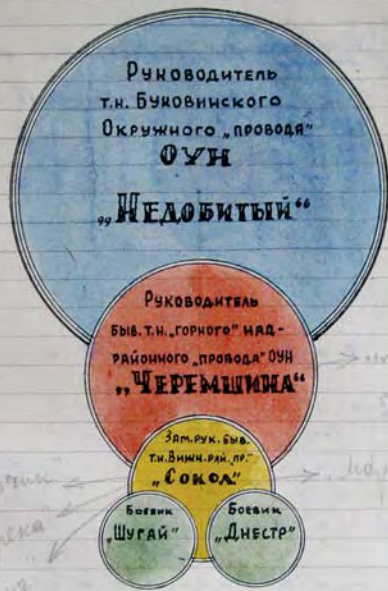 Руководитель
т.н. Буковинского
Окружного „провода"
ОУН
„Недобитый“
Руководитель
быв. т.н. „горного" над-
районного „провода" ОУН
„Черемшина“
Зам. рук. быв.
т.н. Вижн. рай. „пр."
„Сокол"
Боевик
„Шугай"
Боевик
„Днестр"